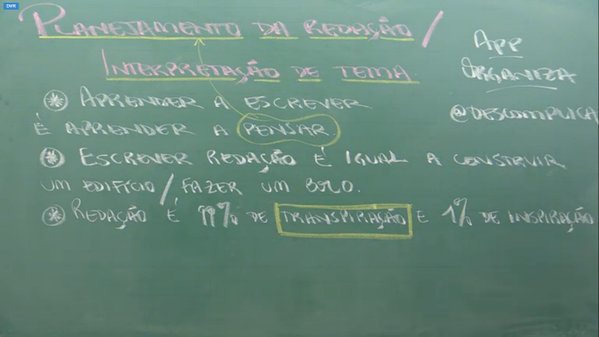 DVR
PLANEJAMENTO DA REDAÇÃO /
INTERPRETAÇÃO DE TEMA
* APRENDER A ESCREVER
É APRENDER A PENSAR
* ESCREVER REDAÇÃO É IGUAL A CONSTRUIR
UM EDIFÍCIO / FAZER UM BOLO.
* REDAÇÃO É 99% DE TRANSPIRAÇÃO E 1% DE INSPIRAÇÃO
APP
ORGANIZA
@DESCOMPLICA